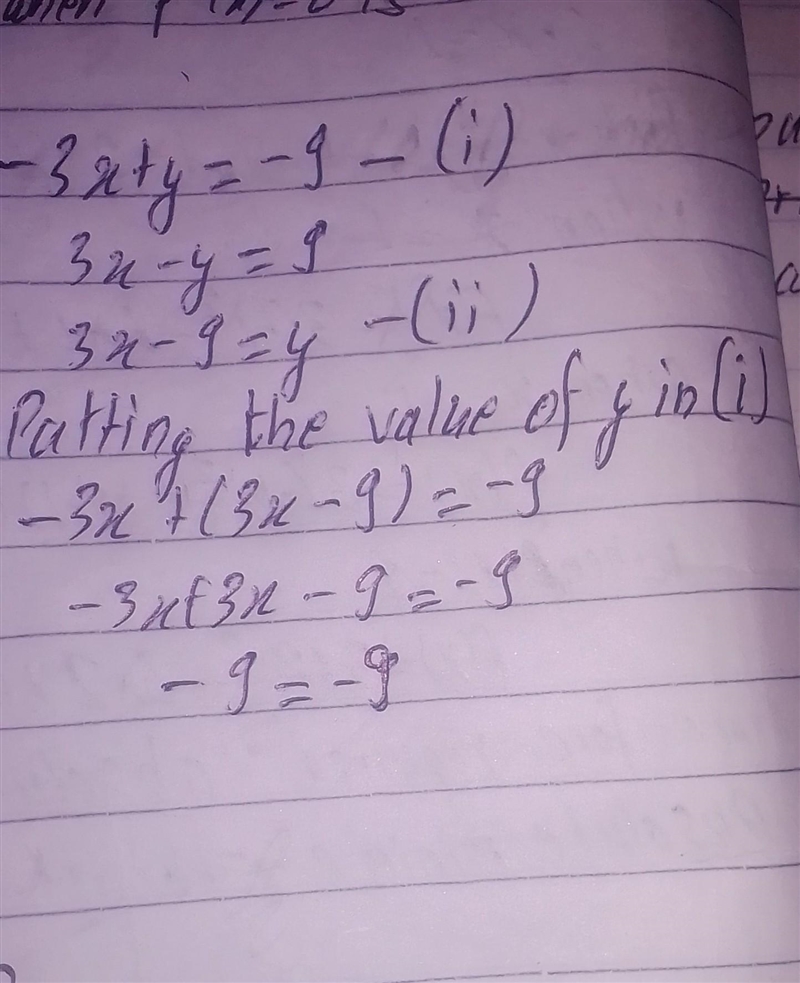 -3x+y=-9 - (i)
3x-y=9
3x-9=y -(ii)
Patting the value of y in (i)
-3x+(3x-9)=-9
-3x+3x-9=-9
-9=-9